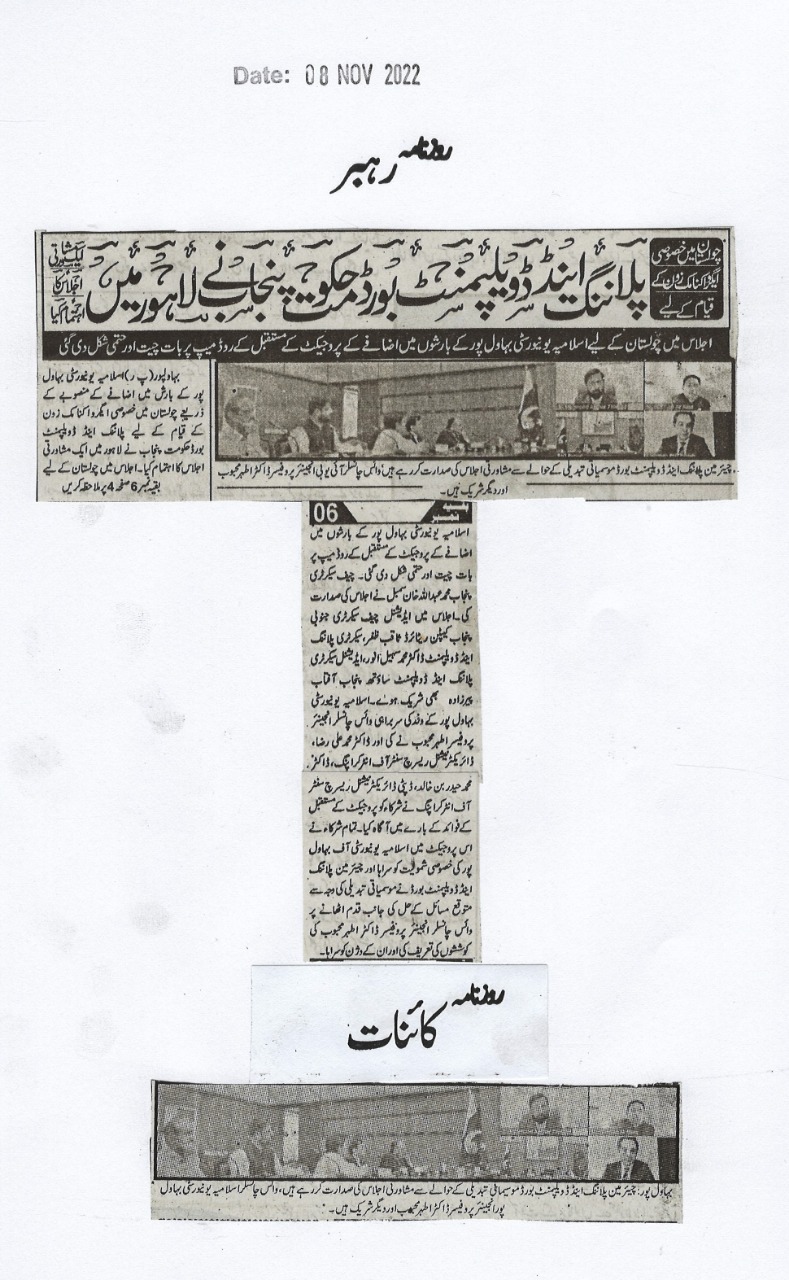 Date: 08 NOV 2022
روزنامہ
رہبر
چولستان میں خصوصی
ایگرو اکنامک زون کے
قیام کے لیے
پلاننگ اینڈ ڈویلپمنٹ بورڈ حکومت پنجاب نے لاہور میں
ایک مشاورتی
اجلاس کا
اہتمام کیا
اجلاس میں چولستان کے لیے اسلامیہ یونیورسٹی بہاول پور کے بارشوں میں اضافے کے پروجیکٹ کے مستقبل کے روڈ میپ پر بات چیت اور حتمی شکل دی گئی
بہاولپور (پ ر) اسلامیہ یونیورسٹی بہاول
پور کے بارش میں اضافے کے منصوبے کے
ذریعے چولستان میں خصوصی ایگرو اکنامک زون
کے قیام کے لیے پلاننگ اینڈ ڈویلپمنٹ
بورڈ حکومت پنجاب نے لاہور میں ایک مشاورتی
اجلاس کا اہتمام کیا۔ اجلاس میں چولستان کے لیے
بقیہ نمبر 6 صفحہ 4 پر ملاحظہ کریں
چیئرمین پلاننگ اینڈ ڈویلپمنٹ بورڈ موسمیاتی تبدیلی کے حوالے سے مشاورتی اجلاس کی صدارت کر رہے ہیں، وائس چانسلر آئی یو بی انجینئر پروفیسر ڈاکٹر اطہر محبوب
اور دیگر شریک ہیں۔
بقیہ نمبر 06
اسلامیہ یونیورسٹی بہاول پور کے بارشوں میں
اضافے کے پروجیکٹ کے مستقبل کے روڈ میپ پر
بات چیت اور حتمی شکل دی گئی۔ چیف سیکرٹری
پنجاب محمد عبداللہ خان سنبل نے اجلاس کی صدارت
کی۔ اجلاس میں ایڈیشنل چیف سیکرٹری جنوبی
پنجاب کیپٹن ریٹائرڈ ثاقب ظفر، سیکرٹری پلاننگ
اینڈ ڈویلپمنٹ ڈاکٹر محمد سہیل انور، ایڈیشنل سیکرٹری
پلاننگ اینڈ ڈویلپمنٹ ساؤتھ پنجاب آفتاب
پیرزادہ بھی شریک ہوے۔ اسلامیہ یونیورسٹی
بہاول پور کے وفد کی سربراہی وائس چانسلر انجینئر
پروفیسر اطہر محبوب نے کی اور ڈاکٹر محمد علی رضا،
ڈائریکٹر نیشنل ریسرچ سنٹر آف انٹر کراپنگ، ڈاکٹر
محمد حیدر بن خالد، ڈپٹی ڈائریکٹر نیشنل ریسرچ سنٹر
آف انٹر کراپنگ نے شرکاء کو پروجیکٹ کے مستقبل
کے فوائد کے بارے میں آگاہ کیا۔ تمام شرکاء نے
اس پروجیکٹ میں اسلامیہ یونیورسٹی آف بہاول
پور کی خصوصی شمولیت کو سراہا اور چیئرمین پلاننگ
اینڈ ڈویلپمنٹ بورڈ نے موسمیاتی تبدیلی کی وجہ سے
متوقع مسائل کے حل کی جانب قدم اٹھانے پر
وائس چانسلر انجینئر پروفیسر ڈاکٹر اطہر محبوب کی
کوششوں کی تعریف کی اور ان کے وژن کو سراہا۔
روزنامہ
کائنات
بہاول پور: چیئرمین پلاننگ اینڈ ڈویلپمنٹ بورڈ موسمیاتی تبدیلی کے حوالے سے مشاورتی اجلاس کی صدارت کر رہے ہیں، وائس چانسلر اسلامیہ یونیورسٹی بہاول
پور انجینئر پروفیسر ڈاکٹر اطہر محبوب اور دیگر شریک ہیں۔